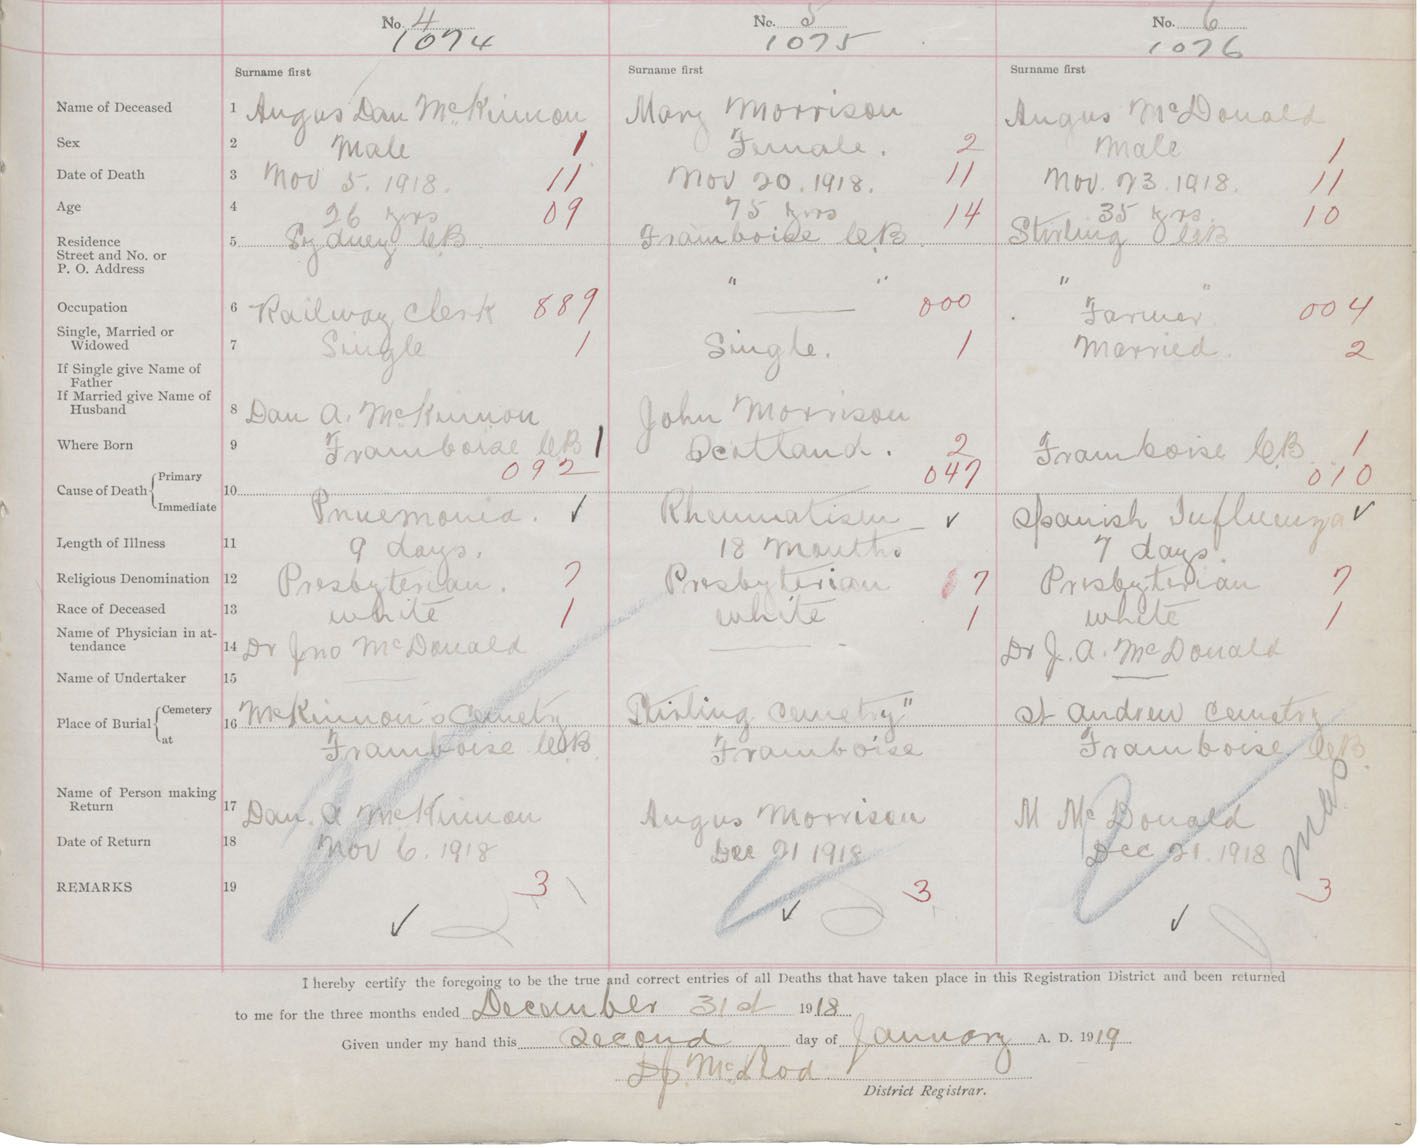 No. 4 No. 5 No. 6
1074 1075 1076
Surname first Surname first Surname first
Name of Deceased 1 Angus Dan McKinnon Mary Morrison Angus McDonald
Sex 2 Male 1 Female. 2 Male 1
Date of Death 3 Nov 5. 1918. 11 Nov 20. 1918. 11 Nov. 23. 1918. 11
Age 4 26 yrs 09 75 yrs 14 35 yrs. 10
Residence 5 Sydney C.B. Framboise C.B. Stirling C.B
Street and No. or
P. O. Address " " " "
Occupation 6 Railway Clerk 889 000 Farmer 004
Single, Married or
Widowed 7 Single 1 Single. 1 Married. 2
If Single give Name of
Father
If Married give Name of
Husband 8 Dan A. McKinnon John Morrison
Where Born 9 Framboise C.B 1 Scotland. 2 Framboise C.B. 1
092 047 010
Cause of Death Primary 10
Immediate Pnuemonia. ✓ Rheumatism ✓ Spanish Influenza ✓
Length of Illness 11 9 days. 18 Months 7 days.
Religious Denomination 12 Presbyterian. 7 Presbyterian 7 Presbyterian 7
Race of Deceased 13 white 1 white 1 white 1
Name of Physician in at-
tendance 14 Dr Jno McDonald Dr J. A. McDonald
Name of Undertaker 15
Place of Burial Cemetery 16 McKinnon's Cemetry Stirling cemetry" St Andrew Cemetry
at Framboise C.B. Framboise Framboise C.B.
Name of Person making
Return 17 Dan. A McKinnon Angus Morrison M McDonald
Date of Return 18 Nov 6. 1918 Dec 21 1918 Dec 21. 1918
REMARKS 19 3 3 3
✓ ✓ ✓
I hereby certify the foregoing to be the true and correct entries of all Deaths that have taken place in this Registration District and been returned
to me for the three months ended December 31st 1918
Given under my hand this Second day of January A. D. 1919
District Registrar.